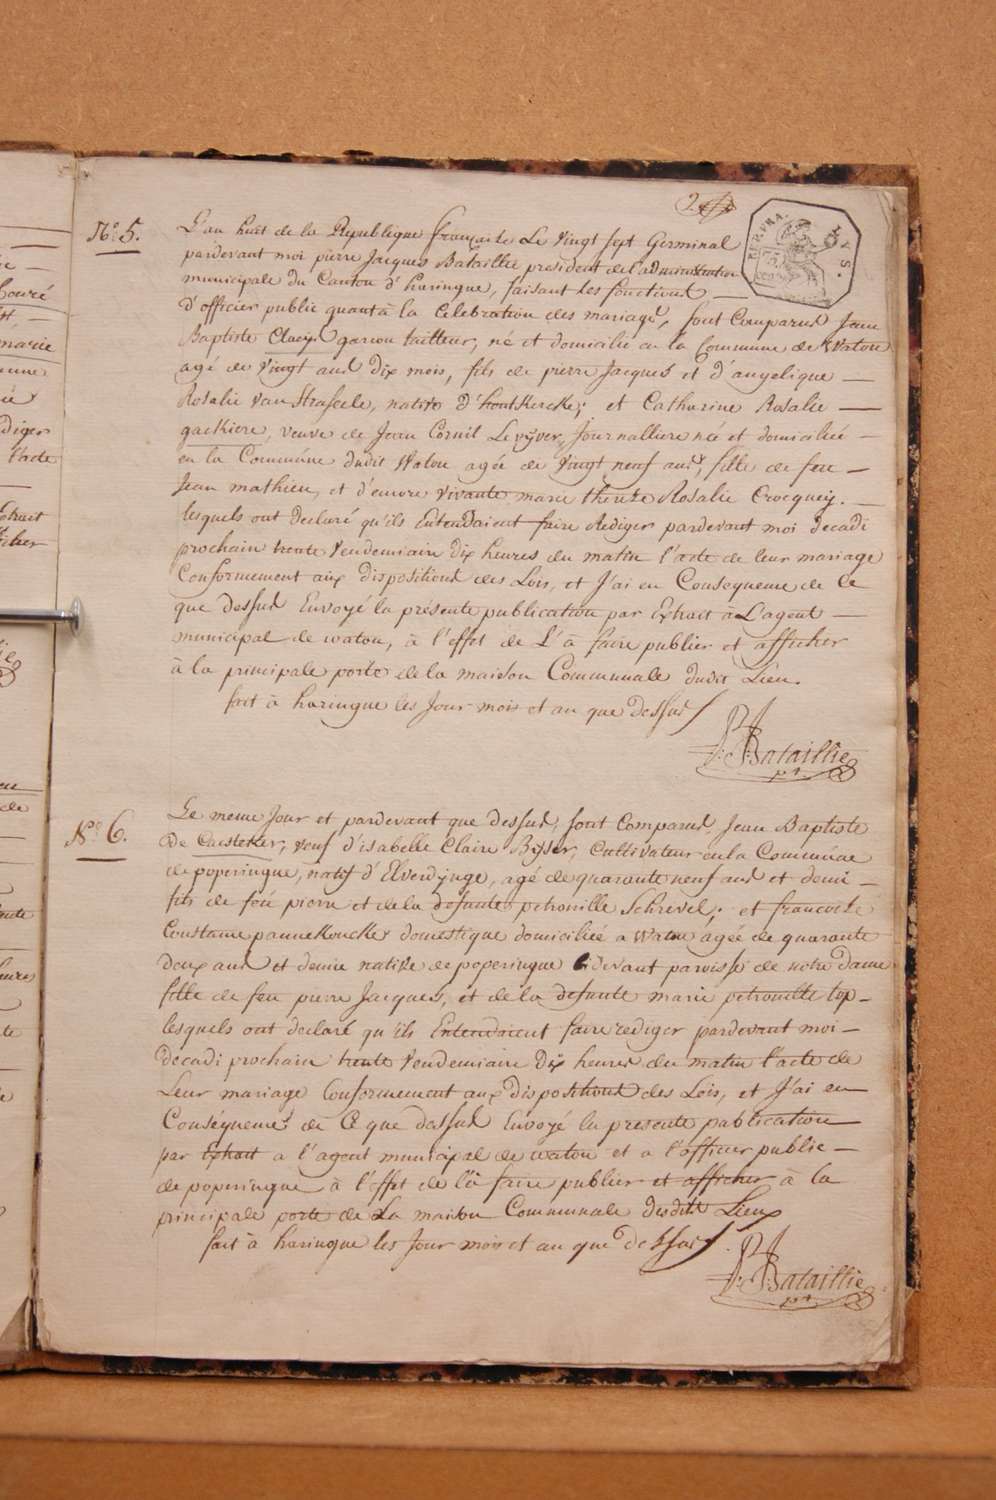 2e
REP. FRA.
75
LYS.
N° 5.
L'an huit de la Republique française Le Vingt Sept Germinal
pardevant moi pierre Jacques Bataillie president de l'administration
municipale du Canton d'haringue, faisant les fonctions
D'officier public quant à la Celebration des mariages, sont Comparus Jean
Baptiste Claeys garçon tailleur, né et domicilié en la Commune de Watou
agé de Vingt ans dix mois, fils de pierre Jacques et d'angelique
Rosalie Van Straseele, native d'houtkercke; et Catharine Rosalie
gackiere, veuve de Jean Cornil Levyver, Journalliere née et domiciliée
en la Commune dudit Watou agée de Vingt neuf ans, fille de feu
Jean mathieu, et d'encore vivante marie therese Rosalie Crocquey.
lesquels ont declaré qu'ils Entendaient faire Rediger pardevant moi decadi
prochain trente Vendemiaire Dix heures du matin l'acte de leur mariage
Conformement aux dispositions des Lois, et J'ai en Consequence de Ce
que dessus Envoyé la présente publication par Extrait à L'agent
municipal de watou, à l'effet de L'à faire publier et afficher
à la principale porte de la maison Communale dudit Lieu.
fait à haringue les Jour mois et an que dessus
P: J: Bataillie
pt
N° 6.
Le meme Jour et pardevant que dessus, sont Comparus, Jean Baptiste
De Caesteker, veuf d'isabelle Claire Bysser, Cultivateur en la Commune
de poperingue, natif d'Elverdynge, agé de quarante neuf ans et demi
fils de feu pierre et de la defunte petronille Schrevel; et francoise
Constance pannekoucke domestique domiciliée a Watou agée de quarante
deux ans et demie native de poperingue Cidevant paroisse de notre Dame
fille de feu pierre Jacques, et de la defunte marie petronille top
lesquels ont declaré qu'ils Entendaient faire rediger pardevant moi
décadi prochain trente Vendemiaire Dix heures du matin l'acte de
Leur mariage Conformement aux dispositions des Lois, et J'ai en
Conséquence de Ce que dessus Envoyé la presente publication
par Extrait a l'agent municipal de watou et a l'officier public
de poperingue à l'effet de l'à faire publier et afficher à la
principale porte de La maison Communale desdits Lieux
fait à haringue les Jour mois et an que dessus
P: J: Bataillie
pt